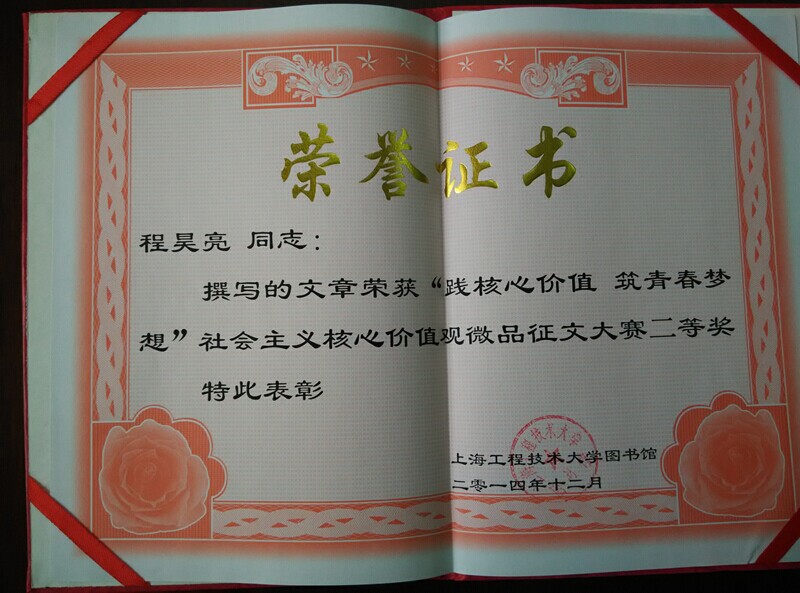 荣誉证书
程昊亮 同志：
撰写的文章荣获“践核心价值 筑青春梦
想”社会主义核心价值观微品征文大赛二等奖
特此表彰
上海工程技术大学图书馆
二零一四年十二月